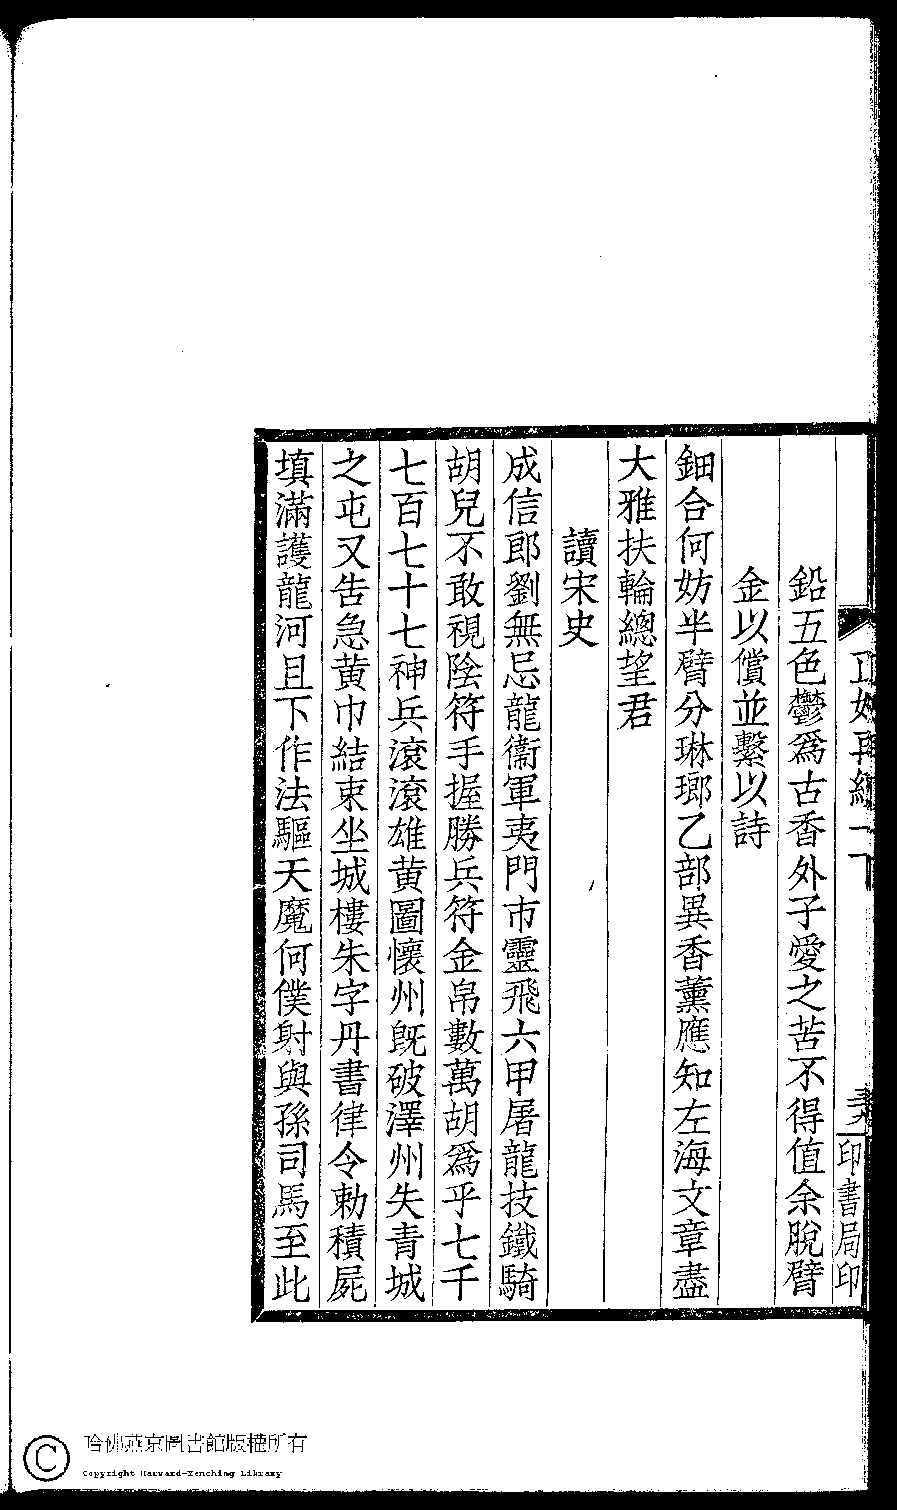 鉛五色鬱爲古香外子愛之苦不得值余脫臂
金以償並繫以詩
鈿合何妨半臂分琳瑯乙部異香薰應知左海文章盡
大雅扶輪總望君
讀宋史
成信郎劉無忌龍衞軍夷門市靈飛六甲屠龍技鐵騎
胡兒不敢視陰符手握勝兵符金帛數萬胡爲乎七千
七百七十七神兵滾滾雄黄圖懷州旣破澤州失青城
之屯又告急黄巾結束坐城樓朱字丹書律令勅積屍
填滿護龍河且下作法驅天魔何僕射與孫司馬至此
印書局印
哈佛燕京圖書館版權所有
Copyright Harvard-Yenching Library